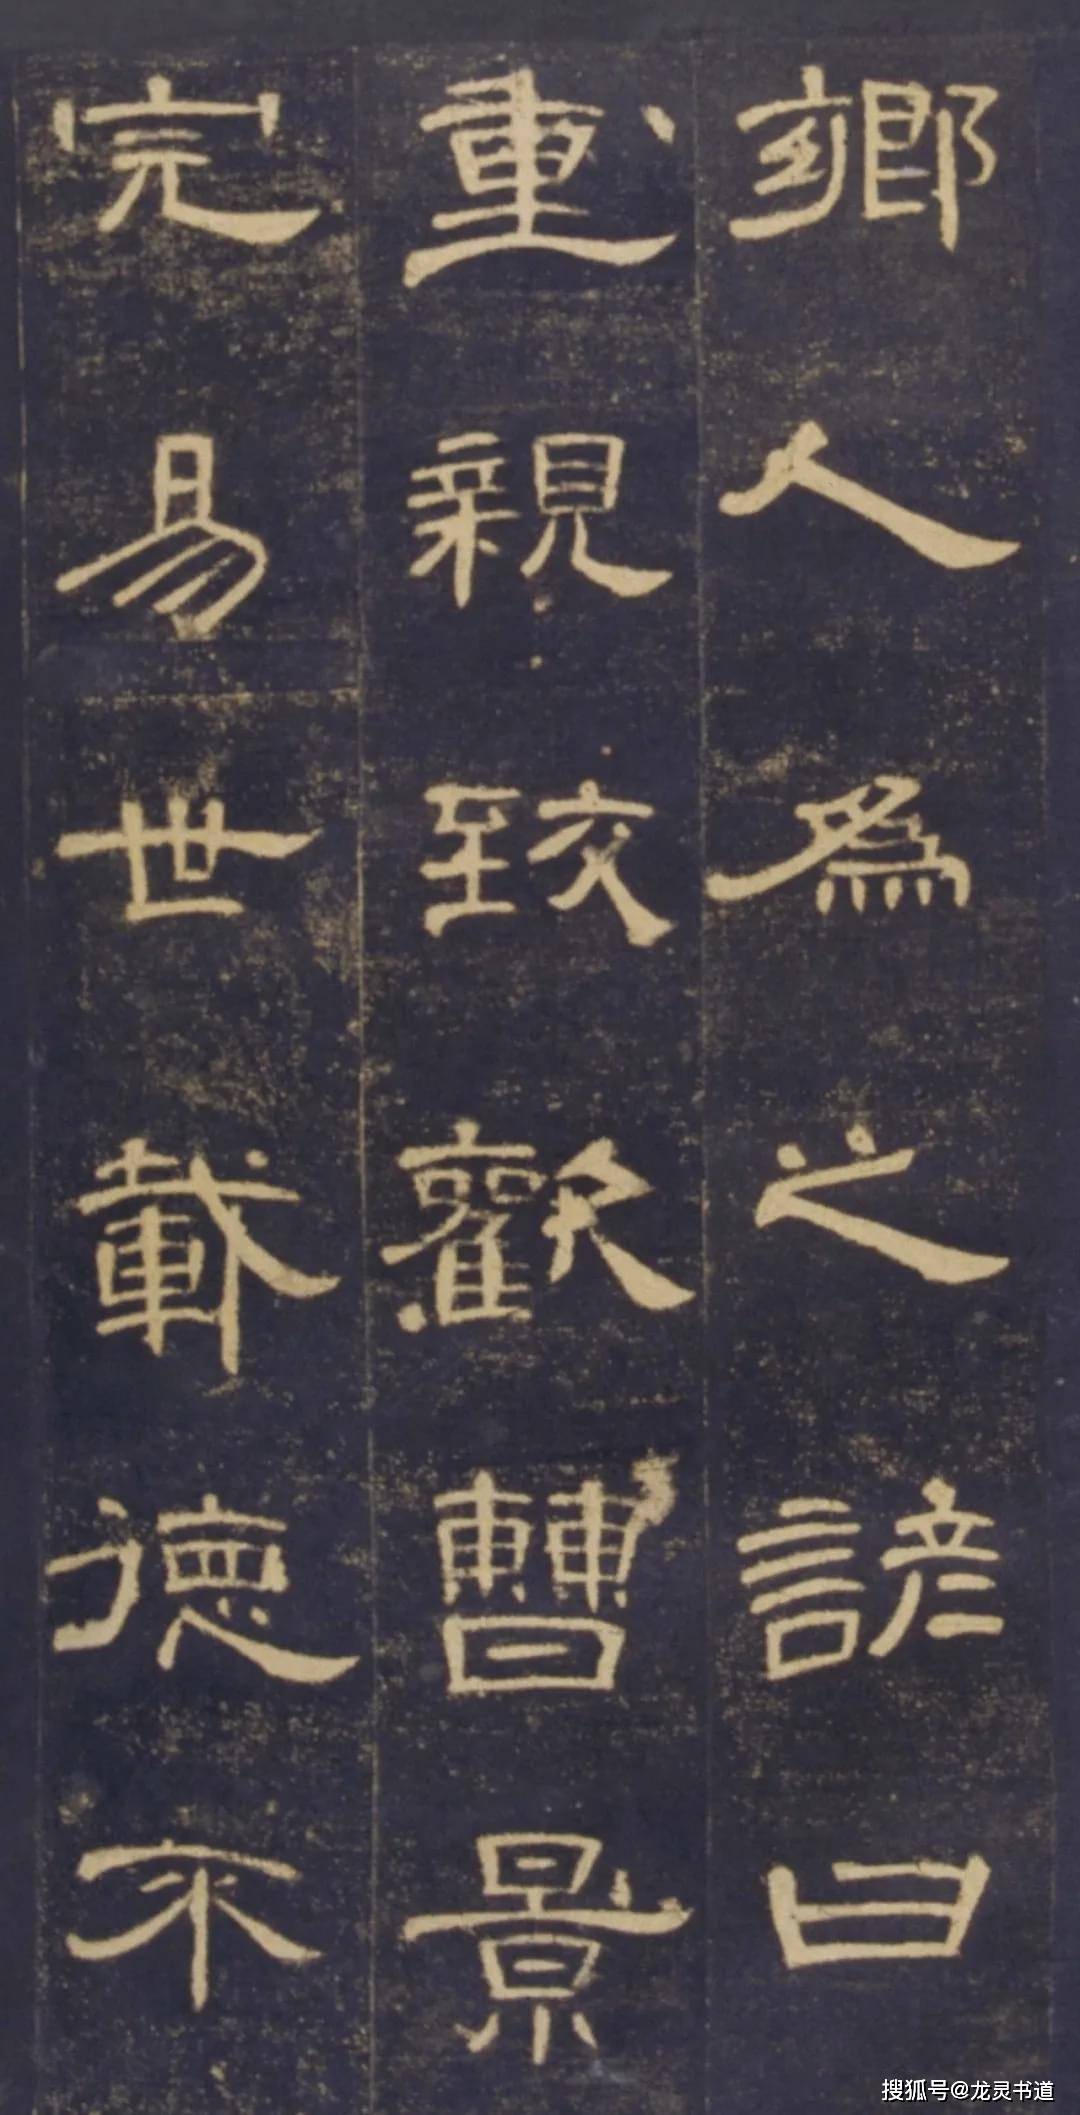 鄉人爲之諺曰
重親致歡曹景
完易世載德不
搜狐号@龙灵书道